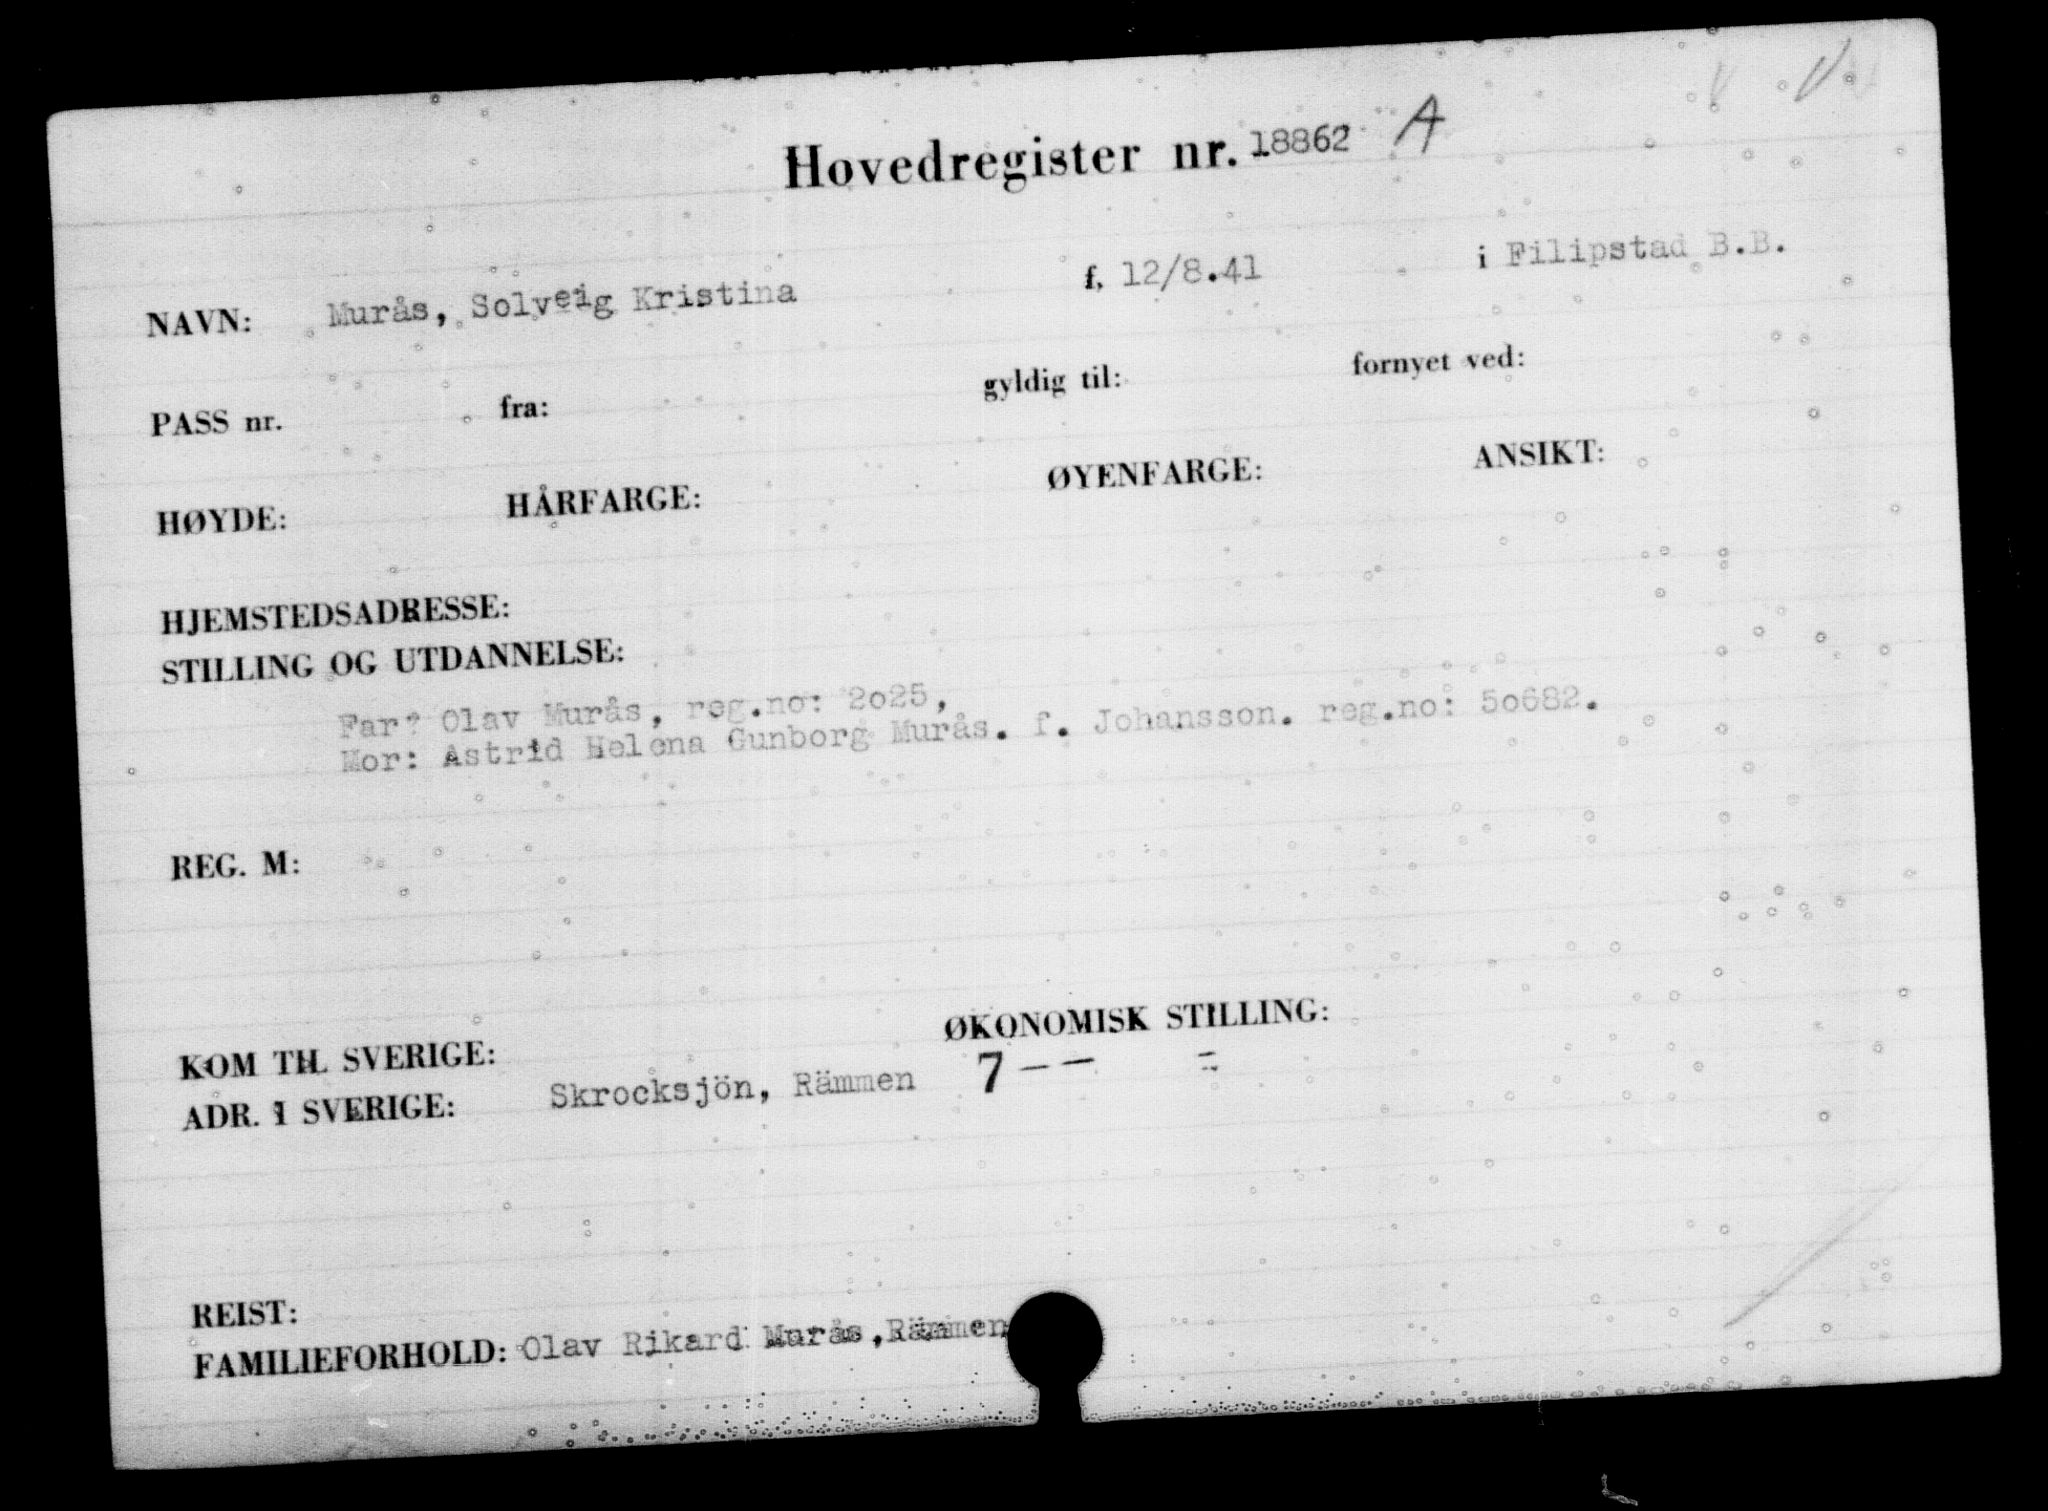 Hovedregister nr. 18862 A
NAVN: Murås, Solveig Kristina f. 12/8.41 i Filipstad B.B.
PASS nr. fra: gyldig til: fornyet ved:
HØYDE: HÅRFARGE: ØYENFARGE: ANSIKT:
HJEMSTEDSADRESSE:
STILLING OG UTDANNELSE:
Far? Olav Murås, reg.no: 2o25,
Mor: Astrid Helena Gunborg Murås. f. Johansson. reg.no: 5o682.
REG. M:
KOM TIL SVERIGE: ØKONOMISK STILLING:
ADR. I SVERIGE: Skrocksjön, Rämmen 7 -- =
REIST:
FAMILIEFORHOLD: Olav Rikard Murås, Rämmen